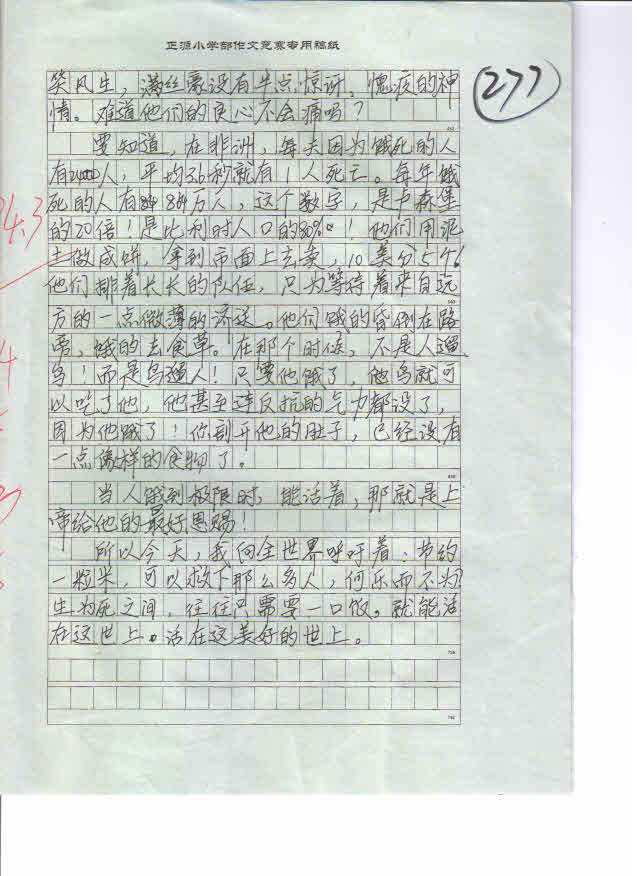 正源小学部作文竞赛专用稿纸
277
笑风生，满丝豪没有半点惊讶、愧疚的神
情。难道他们的良心不会痛吗？
要知道，在非洲，每天因为饿死的人
有24000人，平均3.6秒就有1人死亡。每年饿
死的人有864万人，这个数字，是卢森堡
的20倍！是比利时人口的80%！他们用泥
土做成饼，拿到市面上去卖，10美分5个！
他们排着长长的队伍，只为等待着来自远
方的一点微薄的济送。他们饿的昏倒在路
旁，饿的去食草。在那个时候，不是人遛
鸟！而是鸟遛人！只要他饿了，他鸟就可
以吃了他，他甚至连反抗的气力都没了，
因为他饿了！你剖开他的肚子，已经没有
一点像样的食物了。
当人饿到极限时，能活着，那就是上
帝给他的最好恩赐！
所以今天，我向全世界呼吁着：节约
一粒米，可以救下那么多人，何乐而不为
生与死之间，往往只需要一口饭。就能活
在这世上。活在这美好的世上。